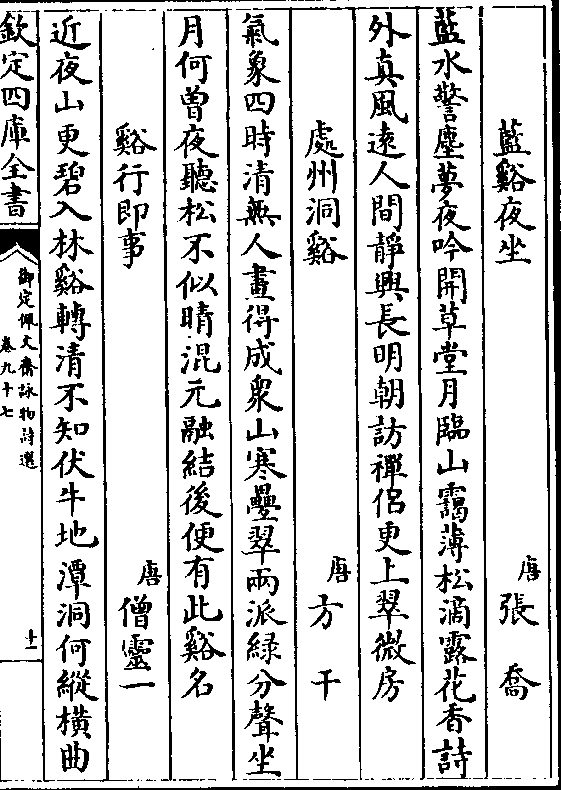 藍谿夜坐　唐張喬
藍水警塵夢夜吟開草堂月臨山靄薄松滴露花香詩
外真風遠人間靜興長明朝訪禪侶更上翠微房
處州洞谿　唐方干
氣象四時清無人畫得成衆山寒疊翠兩派綠分聲坐
月何曾夜聽松不似晴混元融結後便有此谿名
谿行即事　唐僧靈一
近夜山更碧入林谿轉清不知伏牛地潭洞何縱橫曲
欽定四庫全書
御定佩文齋詠物詩選
卷九十七
十一